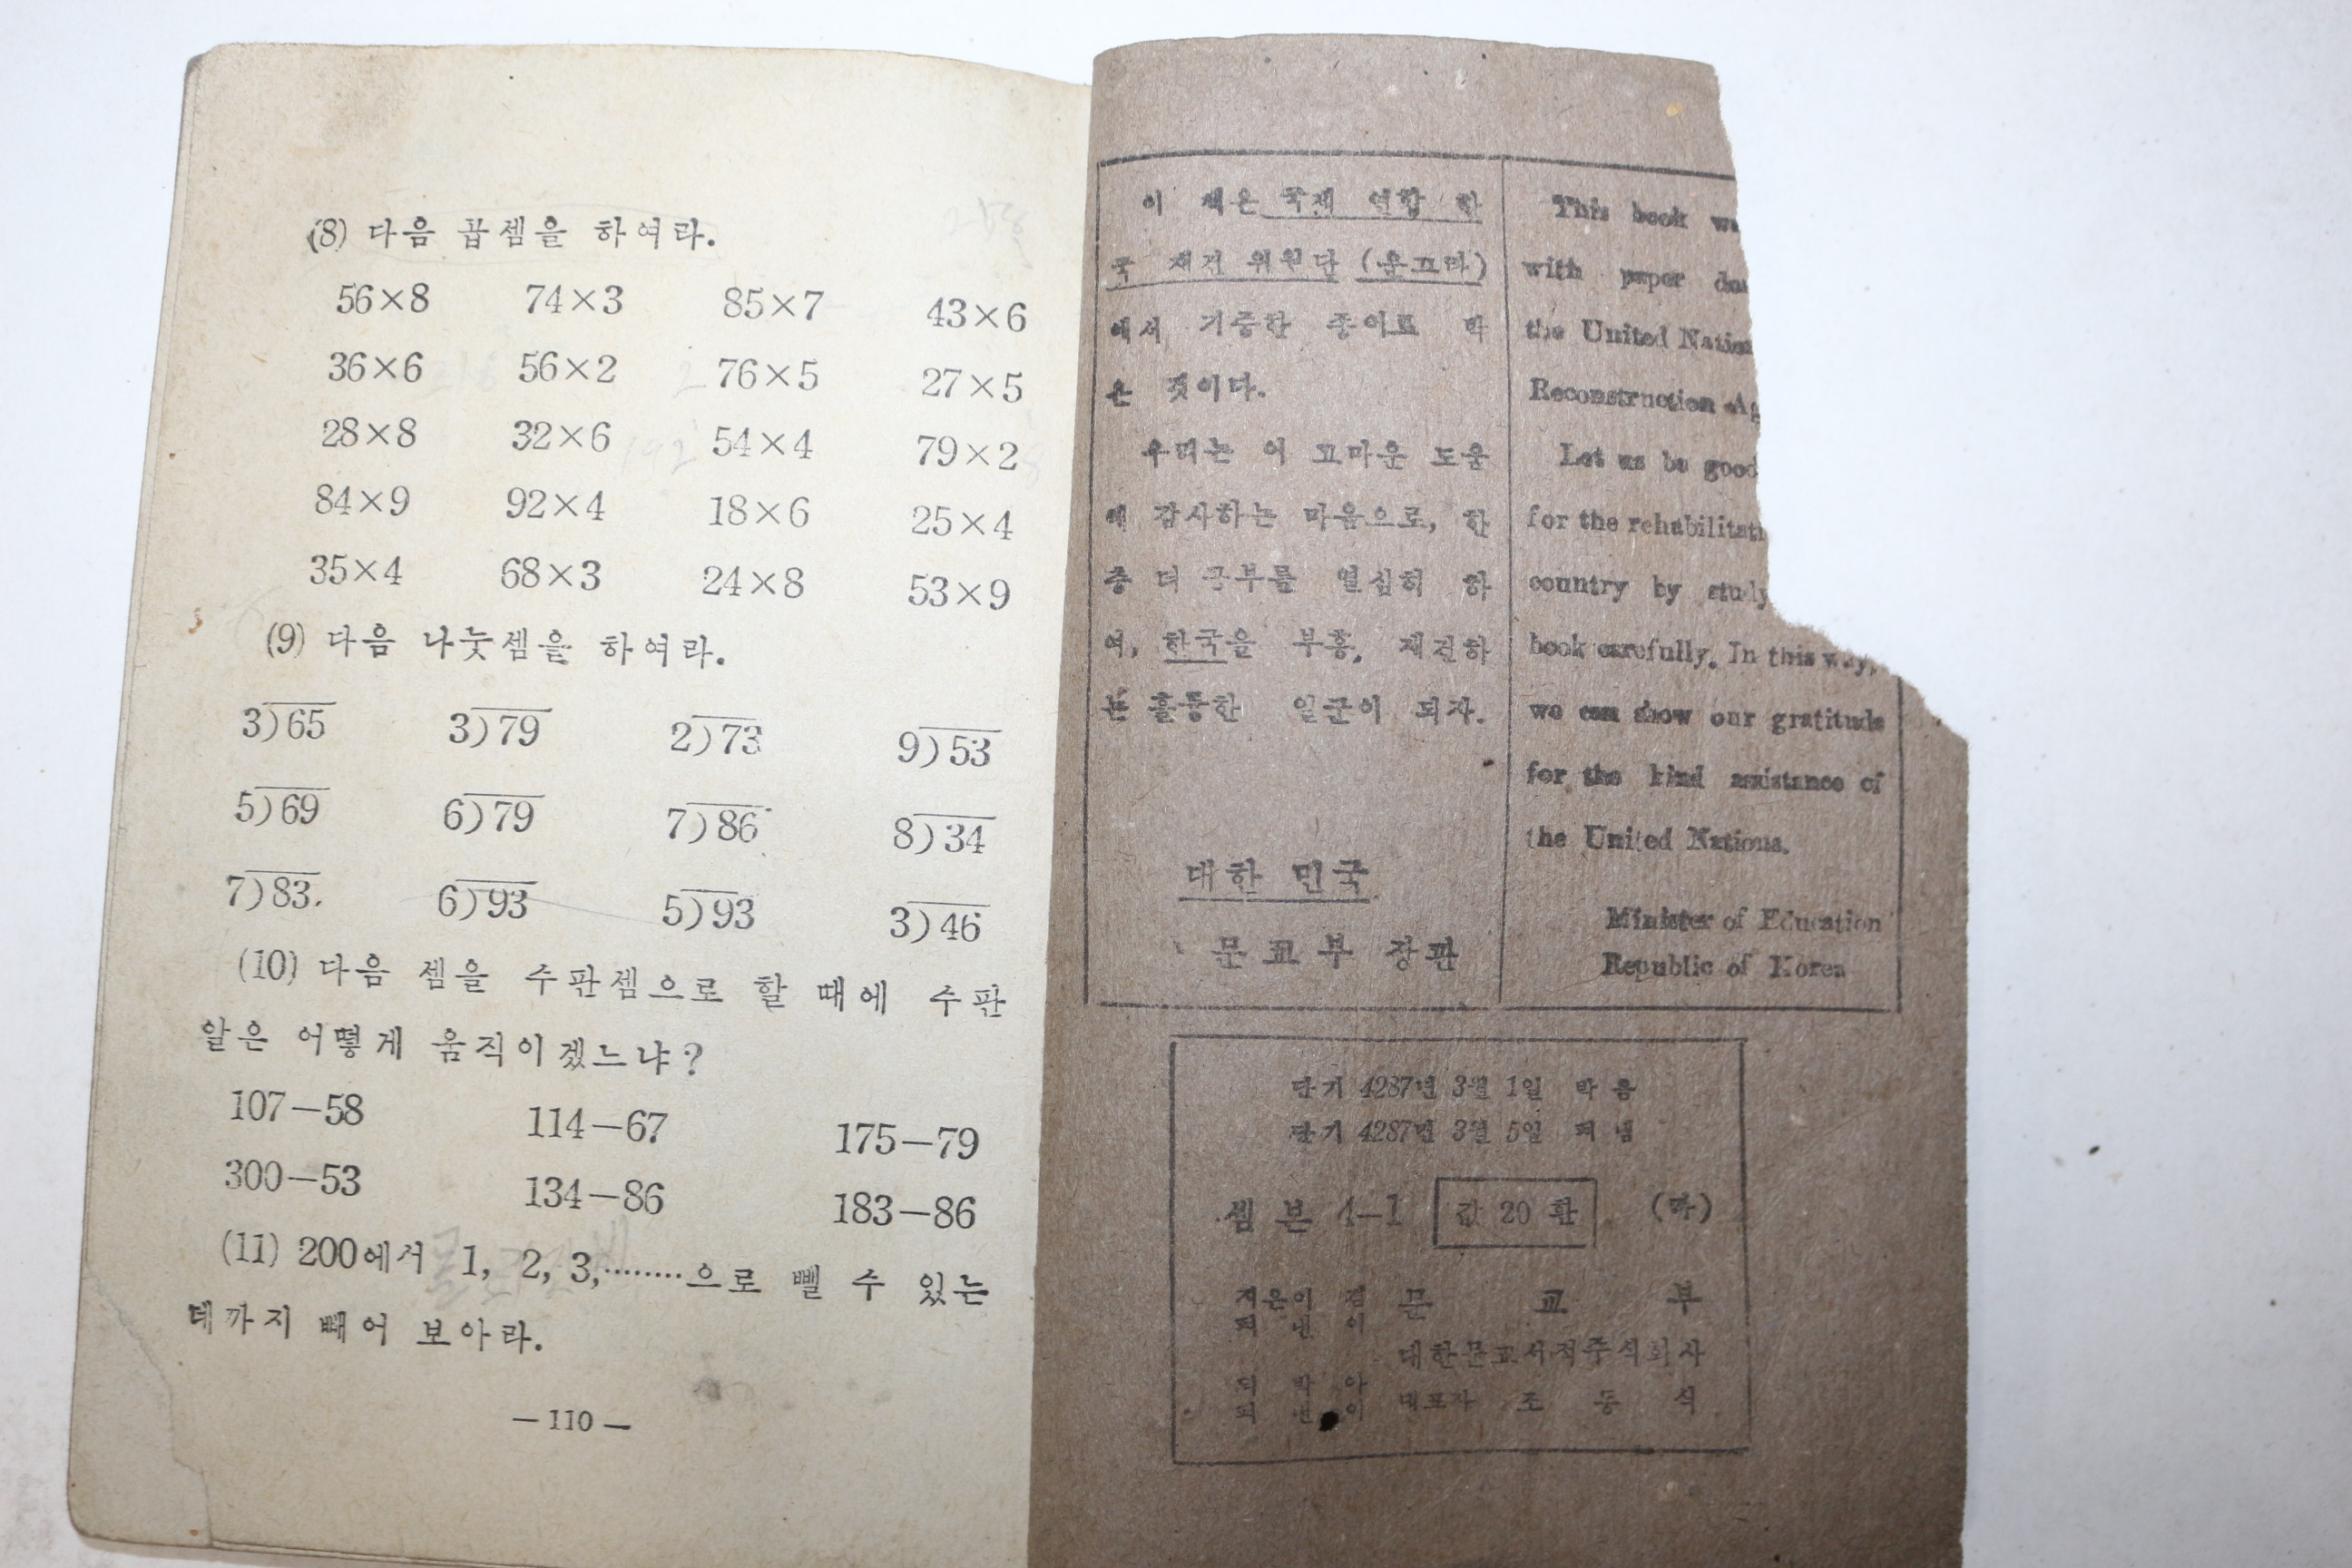 (8) 다음 곱셈을 하여라.
56×8 74×3 85×7 43×6
36×6 56×2 76×5 27×5
28×8 32×6 54×4 79×2
84×9 92×4 18×6 25×4
35×4 68×3 24×8 53×9
(9) 다음 나눗셈을 하여라.
3)65 3)79 2)73 9)53
5)69 6)79 7)86 8)34
7)83 6)93 5)93 3)46
(10) 다음 셈을 수판셈으로 할 때에 수판
알은 어떻게 움직이겠느냐?
107−58 114−67 175−79
300−53 134−86 183−86
(11) 200에서 1, 2, 3,………으로 뺄 수 있는
데까지 빼어 보아라.
— 110 —
이 책은 국제 연합 한
국 재건 위원단 (운끄라)
에서 기증한 종이로 박
은 것이다.
우리는 이 고마운 도움
에 감사하는 마음으로, 한
층 더 공부를 열심히 하
여, 한국을 부흥, 재건하
는 훌륭한 일군이 되자.
대한 민국
문교부 장관
This book
with paper
the United
Reconstruction
Let us be good
for the
country by study
book carefully. In this way,
we can show our gratitude
for the kind assistance of
the United Nations.
Minister of Education
Republic of Korea
단기 4287년 3월 1일 박음
단기 4287년 3월 5일 펴냄
셈본 4—1 값 20 환
지은이 겸 문교부
펴낸이
대한문교서적주식회사
박아
펴낸이 대표자 조동식